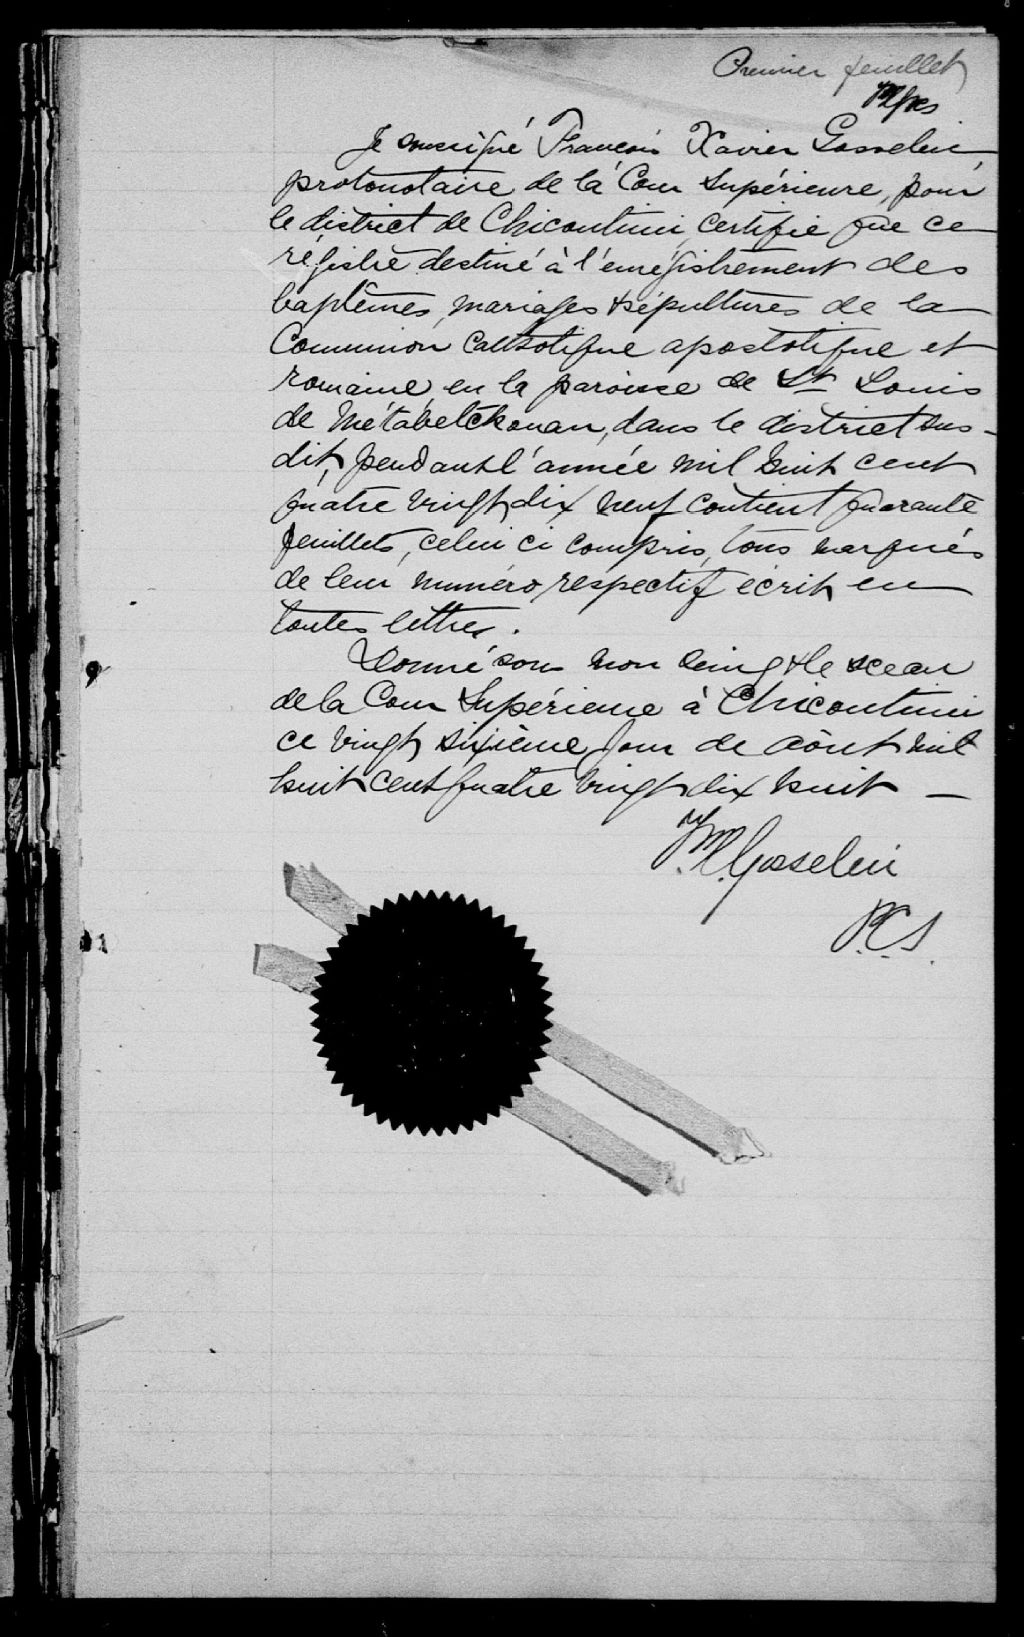 Premier feuillet
Je soussigné François Xavier Gosselin,
protonotaire de la Cour Supérieure, pour
le district de Chicoutimi, certifie que ce
régistre destiné à l'enregistrement des
baptêmes, mariages & sépultures de la
Communion Catholique apostolique et
romaine, en la paroisse de St Louis
de Métabetchouan, dans le district sus-
dit, pendant l'année mil huit cent
quatre vingt dix neuf contient quarante
feuillets, celui ci compris, tous marqués
de leur numéro respectif écrit en
toutes lettres.
Donné sous mon seing & le sceau
de la Cour Supérieure à Chicoutimi
ce vingt sixième jour de août mil
huit cent quatre vingt dix huit —
Gosselin
P.C.S.